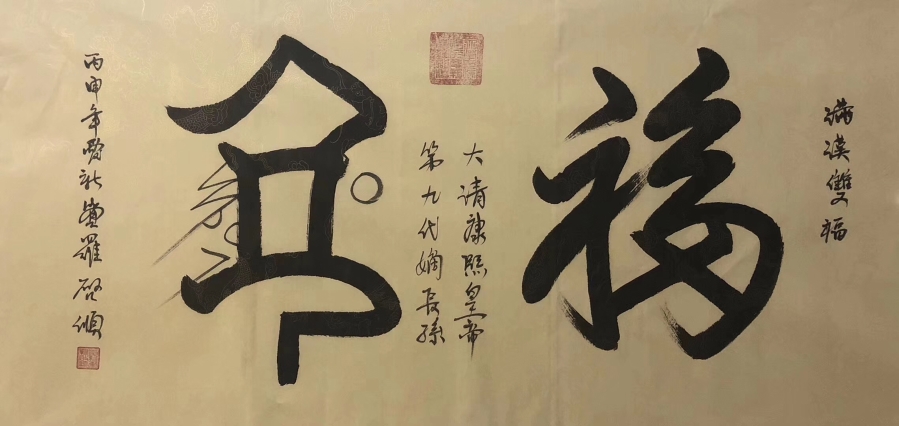 滿漢雙福
福
大清康熙皇帝
第九代嫡長孫
丙申年愛新覺羅啓